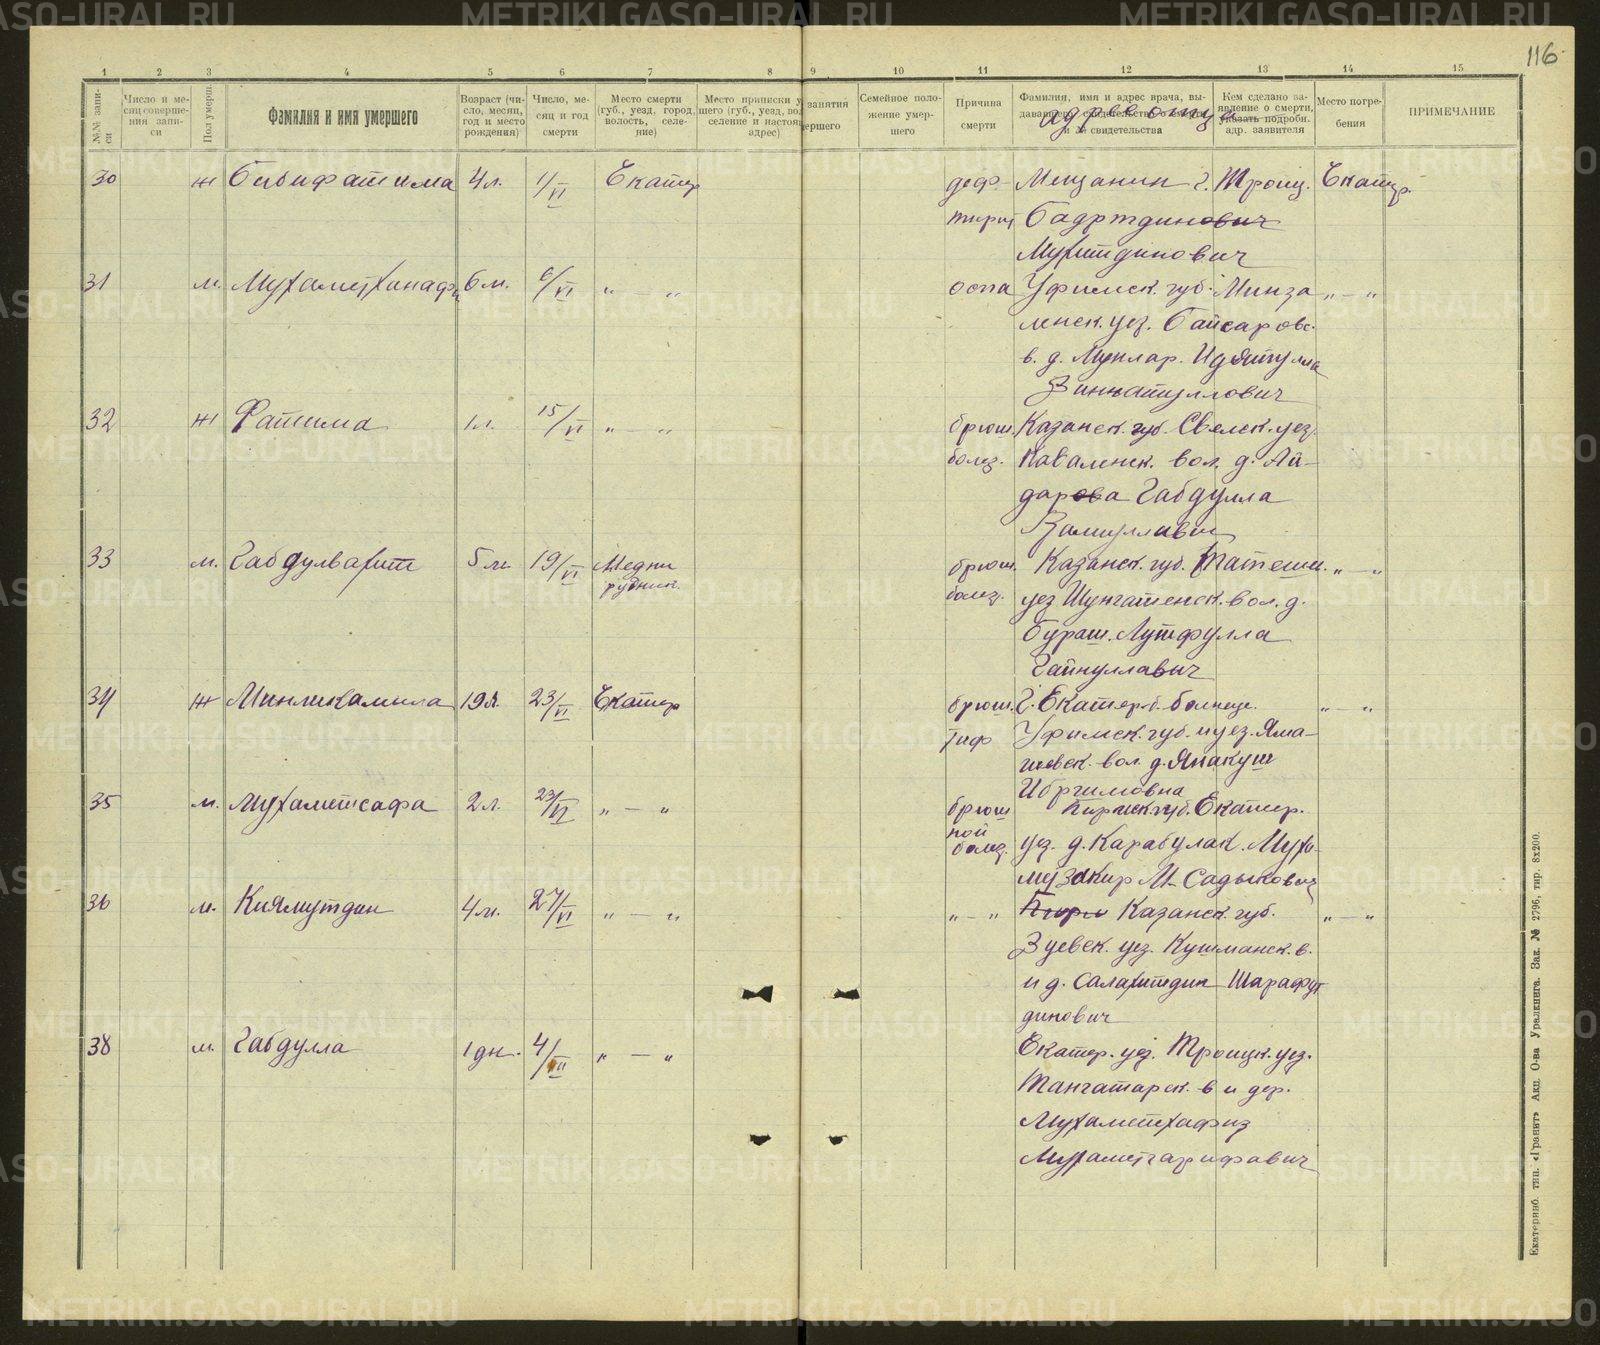 116
1 2 3 4 5 6 7 8 9 10 11 12 13 14 15
№№ запи-
си
Число и ме-
сяц соверше-
ния запи-
си
Пол умерш.
Фамилия и имя умершего
Возраст (чи-
сло, месяц,
год и место
рождения)
Число, ме-
сяц и год
смерти
Место смерти
(губ., уезд, город,
волость, селе-
ние)
Место приписки у
шего (губ., уезд, во
селение и настоя
адрес)
занятия
ершего
Семейное поло-
жение умер-
шего
Причина
смерти
Фамилия, имя и адрес врача, вы-
и № свидетельства
адрес отца
Кем сделано за-
явление о смерти,
указать подробн.
адр. заявителя
Место погре-
бения
ПРИМЕЧАНИЕ
30 ж Бибифатима 4 л. 1/VI Екатер
диф- Мещанин г. Троиц. Екатер.
терит Бадртдинович
Мухитдинович
31 м. Мухаметханафи 6 м. 6/VI „ — „
оспа Уфимск. губ. Минза „ — „
линск. уез. Байсаровс.
в. д. Мунлар. Идиятулла
Зиннатуллович
32 ж Фатима 1 л. 15/VI „ — „
брюш. Казанск. губ. Свелск. уез.
болез. Каваленск. вол. д. Ай-
дарова Габдулла
33 м. Габдулвахит 5 м. 19/VI Медни
рудник.
брюш. Казанск. губ. „ — „
болез. уез Шунгатенск. вол. д.
бураш. Лутфулла
Гайнуллавич
34 ж Минликамила 19 л. 23/VI Екатер
брюш. г. Екатер-б. больнице. „ — „
тиф Уфимск. губ. и уез. Яма-
шевск. вол. д. Япакуш
Ибргимовна
35 м. Мухаметсафа 2 л. 23/VI „ — „
брюш Пермск. губ. Екатер.
ной
болез. уез. д. Карабулак. Муха-
музакир М- Садыкович
36 м. Киямутдин 4 м. 27/VI „ — „
„ — „ Перм Казанск. губ. „ — „
Зуевск. уез. Кушманск. в.
и д. Салахитдин Шарафут
динович
38 м. Габдулла 1 дн. 4/VII „ — „
Екатер. уез. Троицк. уез.
Тангатарск. в и дер.
Мухаметхафиз
Мухаметгарифович
Екатеринб. тип. «Гранит» Акц. О-ва Уралкнига. Зак. № 2796, тир. 8х200.
METRIKI.GASO-URAL.RU